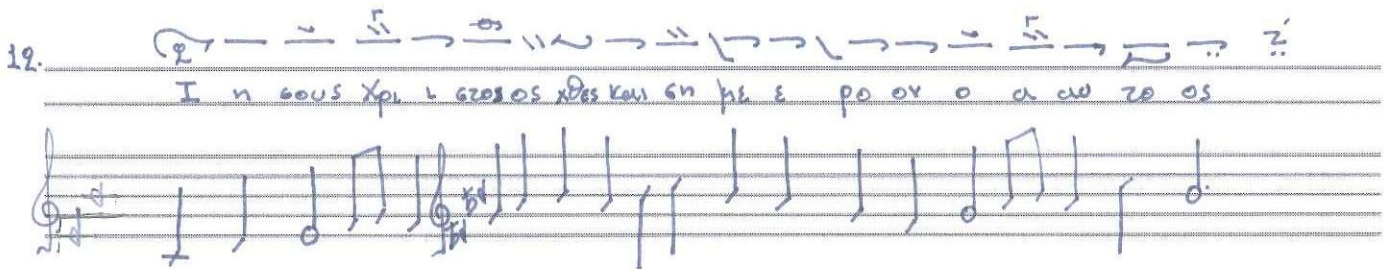 12.
Ι η σους Χρι ι στος ος χθες και ση με ε ρο ον ο α αυ το ος